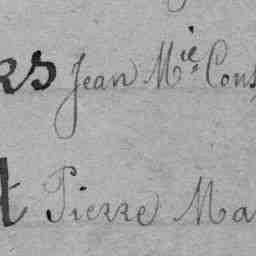 rs Jean Mie. Cons
t Pierre Ma